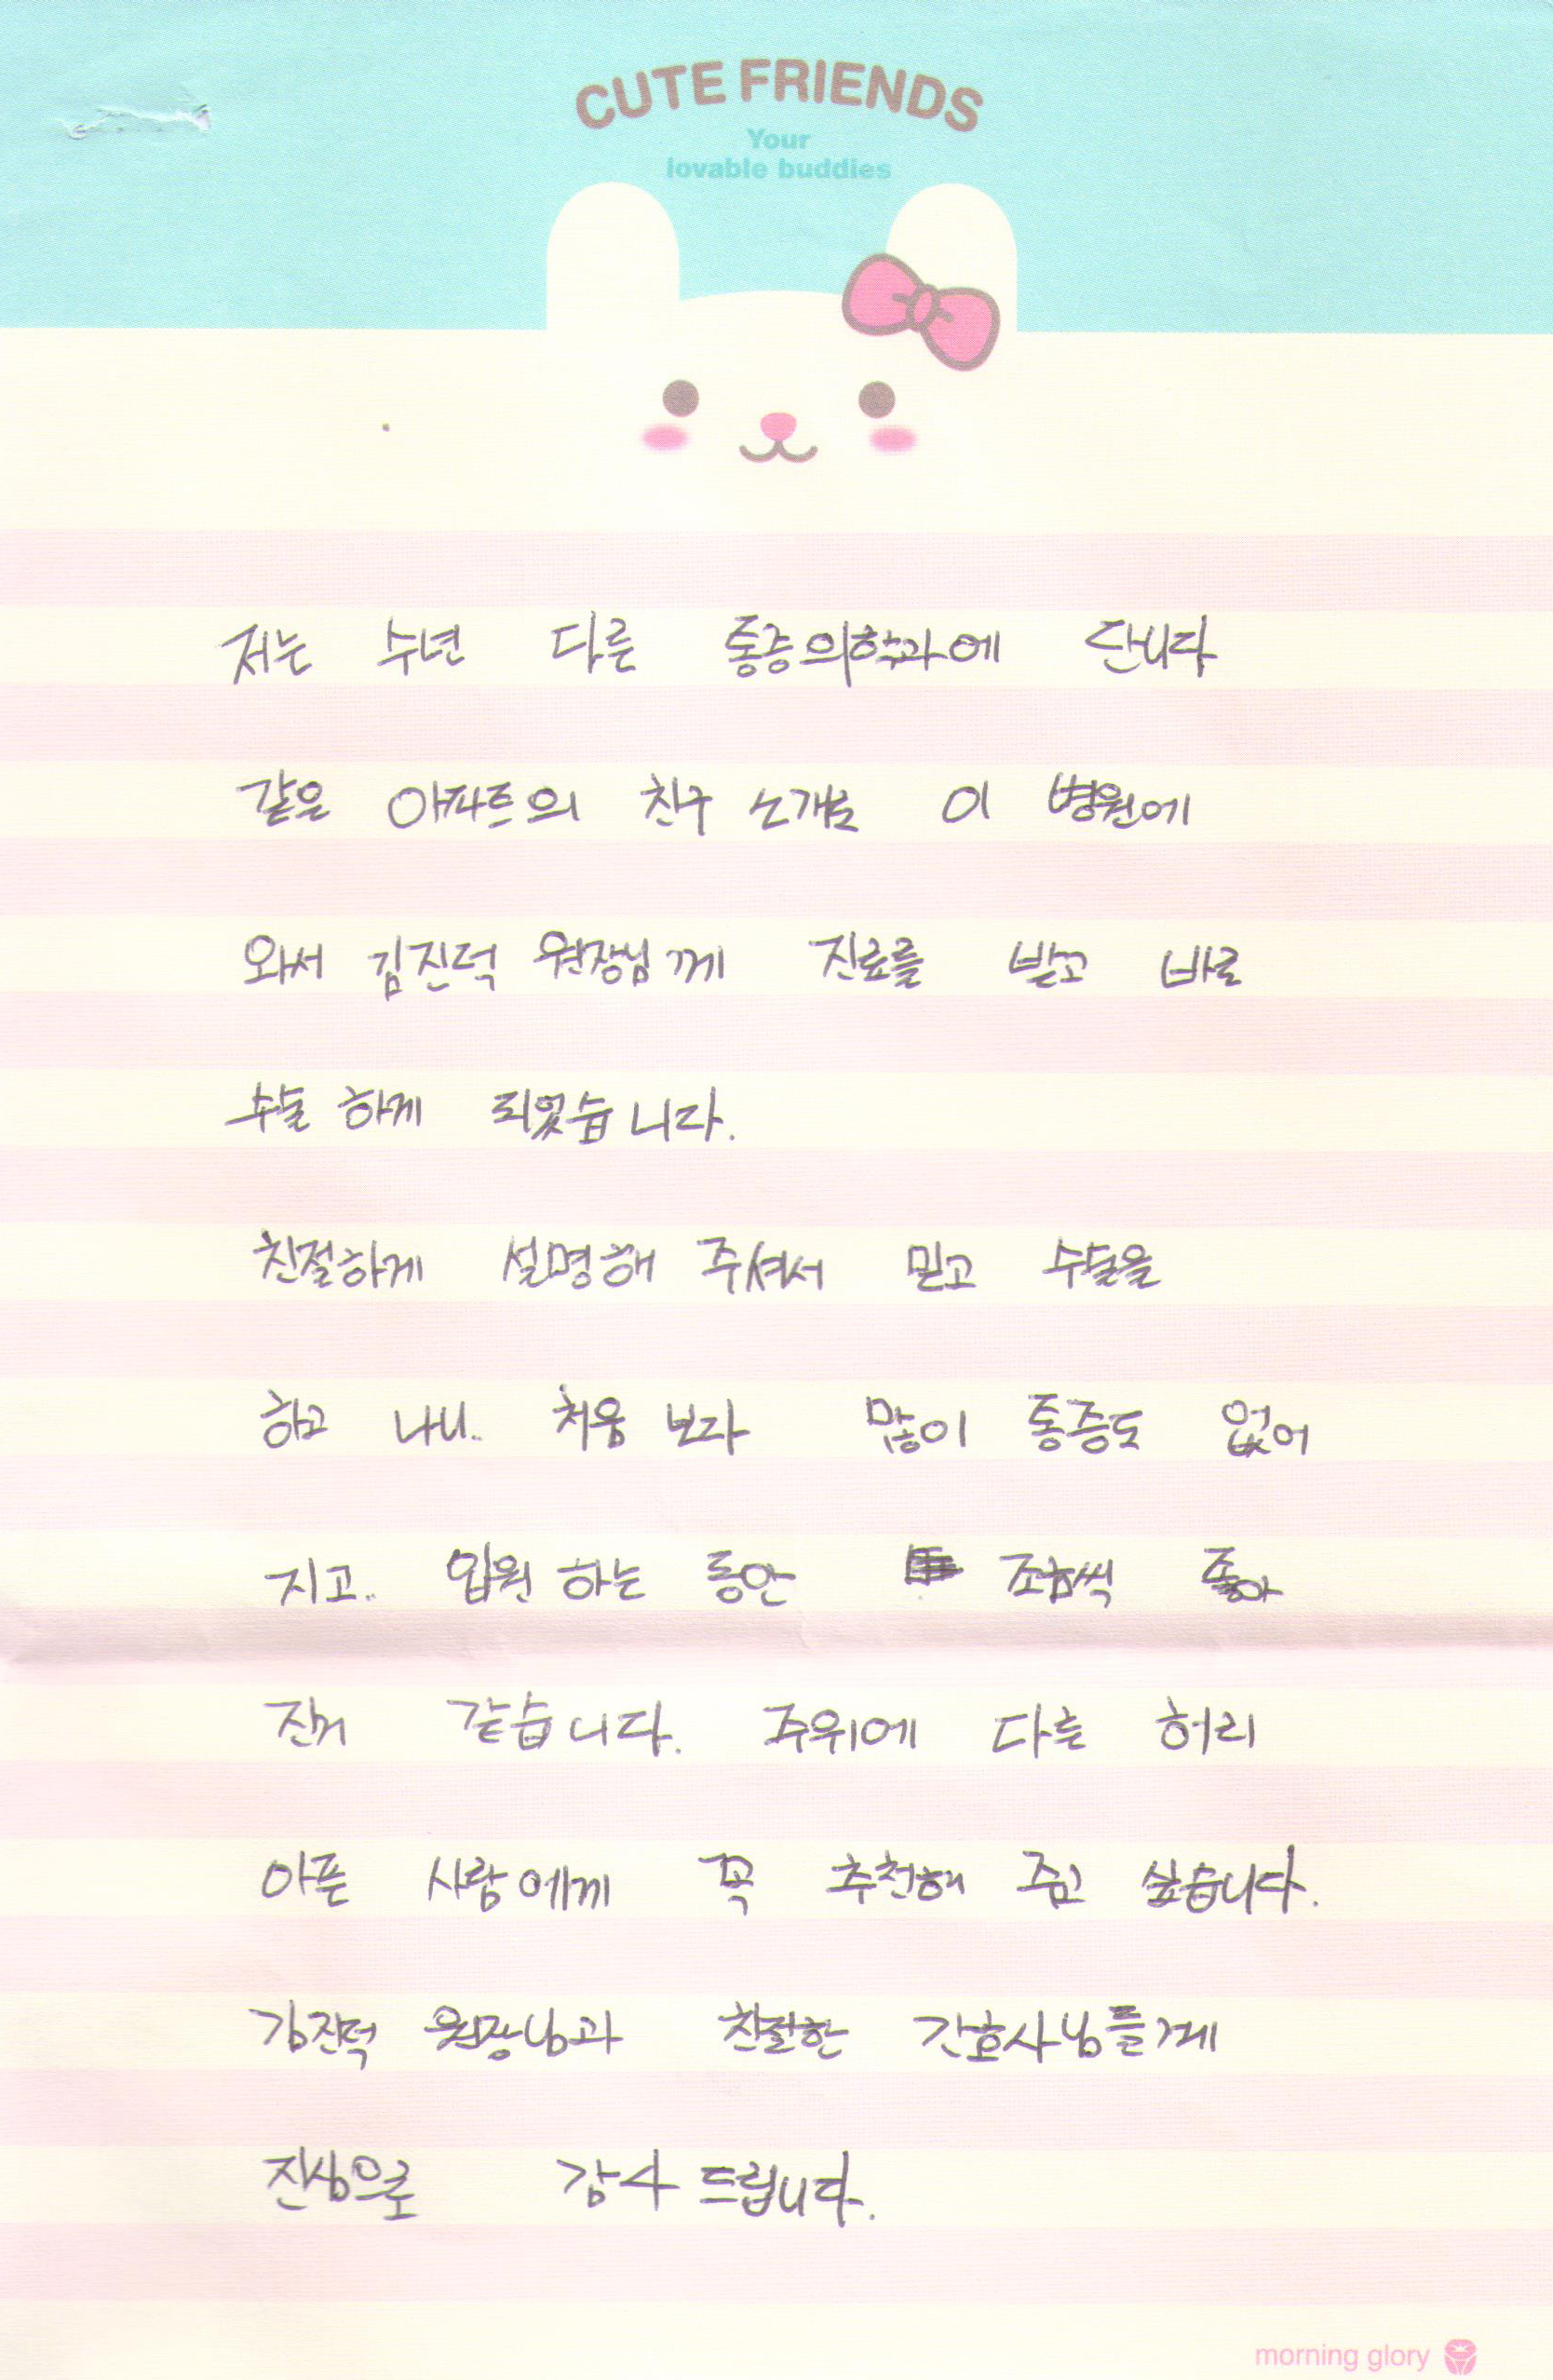 CUTE FRIENDS
Your
lovable buddies
저는 수년 다른 통증의학과에 단니다
같은 아파트의 친구 소개로 이 병원에
와서 김진덕 원장님께 진료를 받고 바로
수술 하게 되었습니다.
친절하게 설명해 주셔서 믿고 수술을
하고 나니.. 처음 보다 많이 통증도 없어
지고.. 입원 하는 동안 조금씩 좋아
진거 같습니다. 주위에 다른 허리
아픈 사람에게 꼭 추천해 주고 싶습니다.
김진덕 원장님과 친절한 간호사님들께
진심으로 감사 드립니다.
morning glory